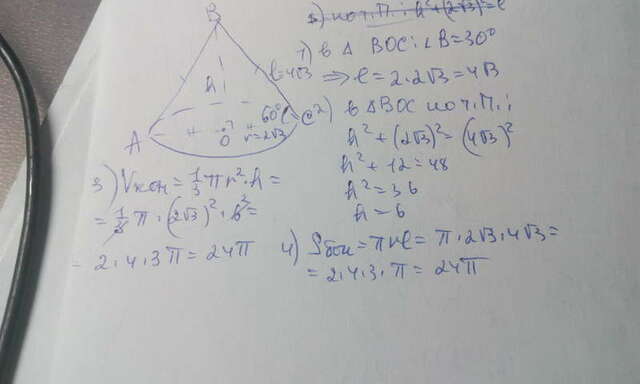 B
h
l=4√3
60°
C
A
O
r=2√3
1) в Δ BOC: ∠B=30°
⇒ l=2·2√3=4√3
2) в ΔBOC по т.П.:
h²+(2√3)²=(4√3)²
h²+12=48
h²=36
h=6
3) Vкон=1/3πr²·h=
=1/3π·(2√3)²·6=
=2·4·3π=24π
4) Sбок=πrl=π·2√3·4√3=
=2·4·3·π=24π